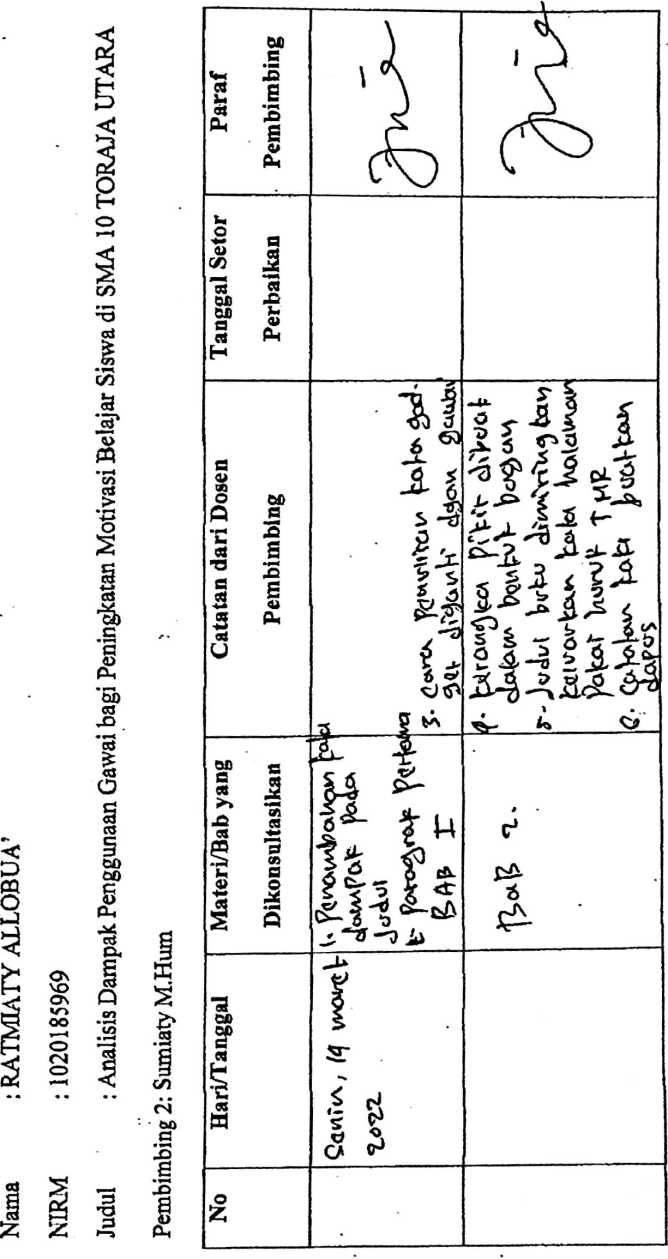 Nama : RATMIATY ALLOBUA'
NIRM : 1020185969
Judul : Analisis Dampak Penggunaan Gawai bagi Peningkatan Motivasi Belajar Siswa di SMA 10 TORAJA UTARA
Pembimbing 2: Sumiaty M.Hum
No
Hari/Tanggal
Materi/Bab yang
Dikonsultasikan
Catatan dari Dosen
Pembimbing
Tanggal Setor
Perbaikan
Paraf
Pembimbing
Senin, 14 maret
2022
1. Penambahan kata
dampak pada
Judul
Paragraf Pertama
BAB I
3. Cara Penulisan kata gad-
get diganti dgan gawai
BaB 2.
4. kerangka Pikir dibuat
dalam bentuk bagan
5. Judul buku dimiringkan
keluarkan kata halaman
Pakai huruf TMR
6. Catatan kaki buatkan
dapus